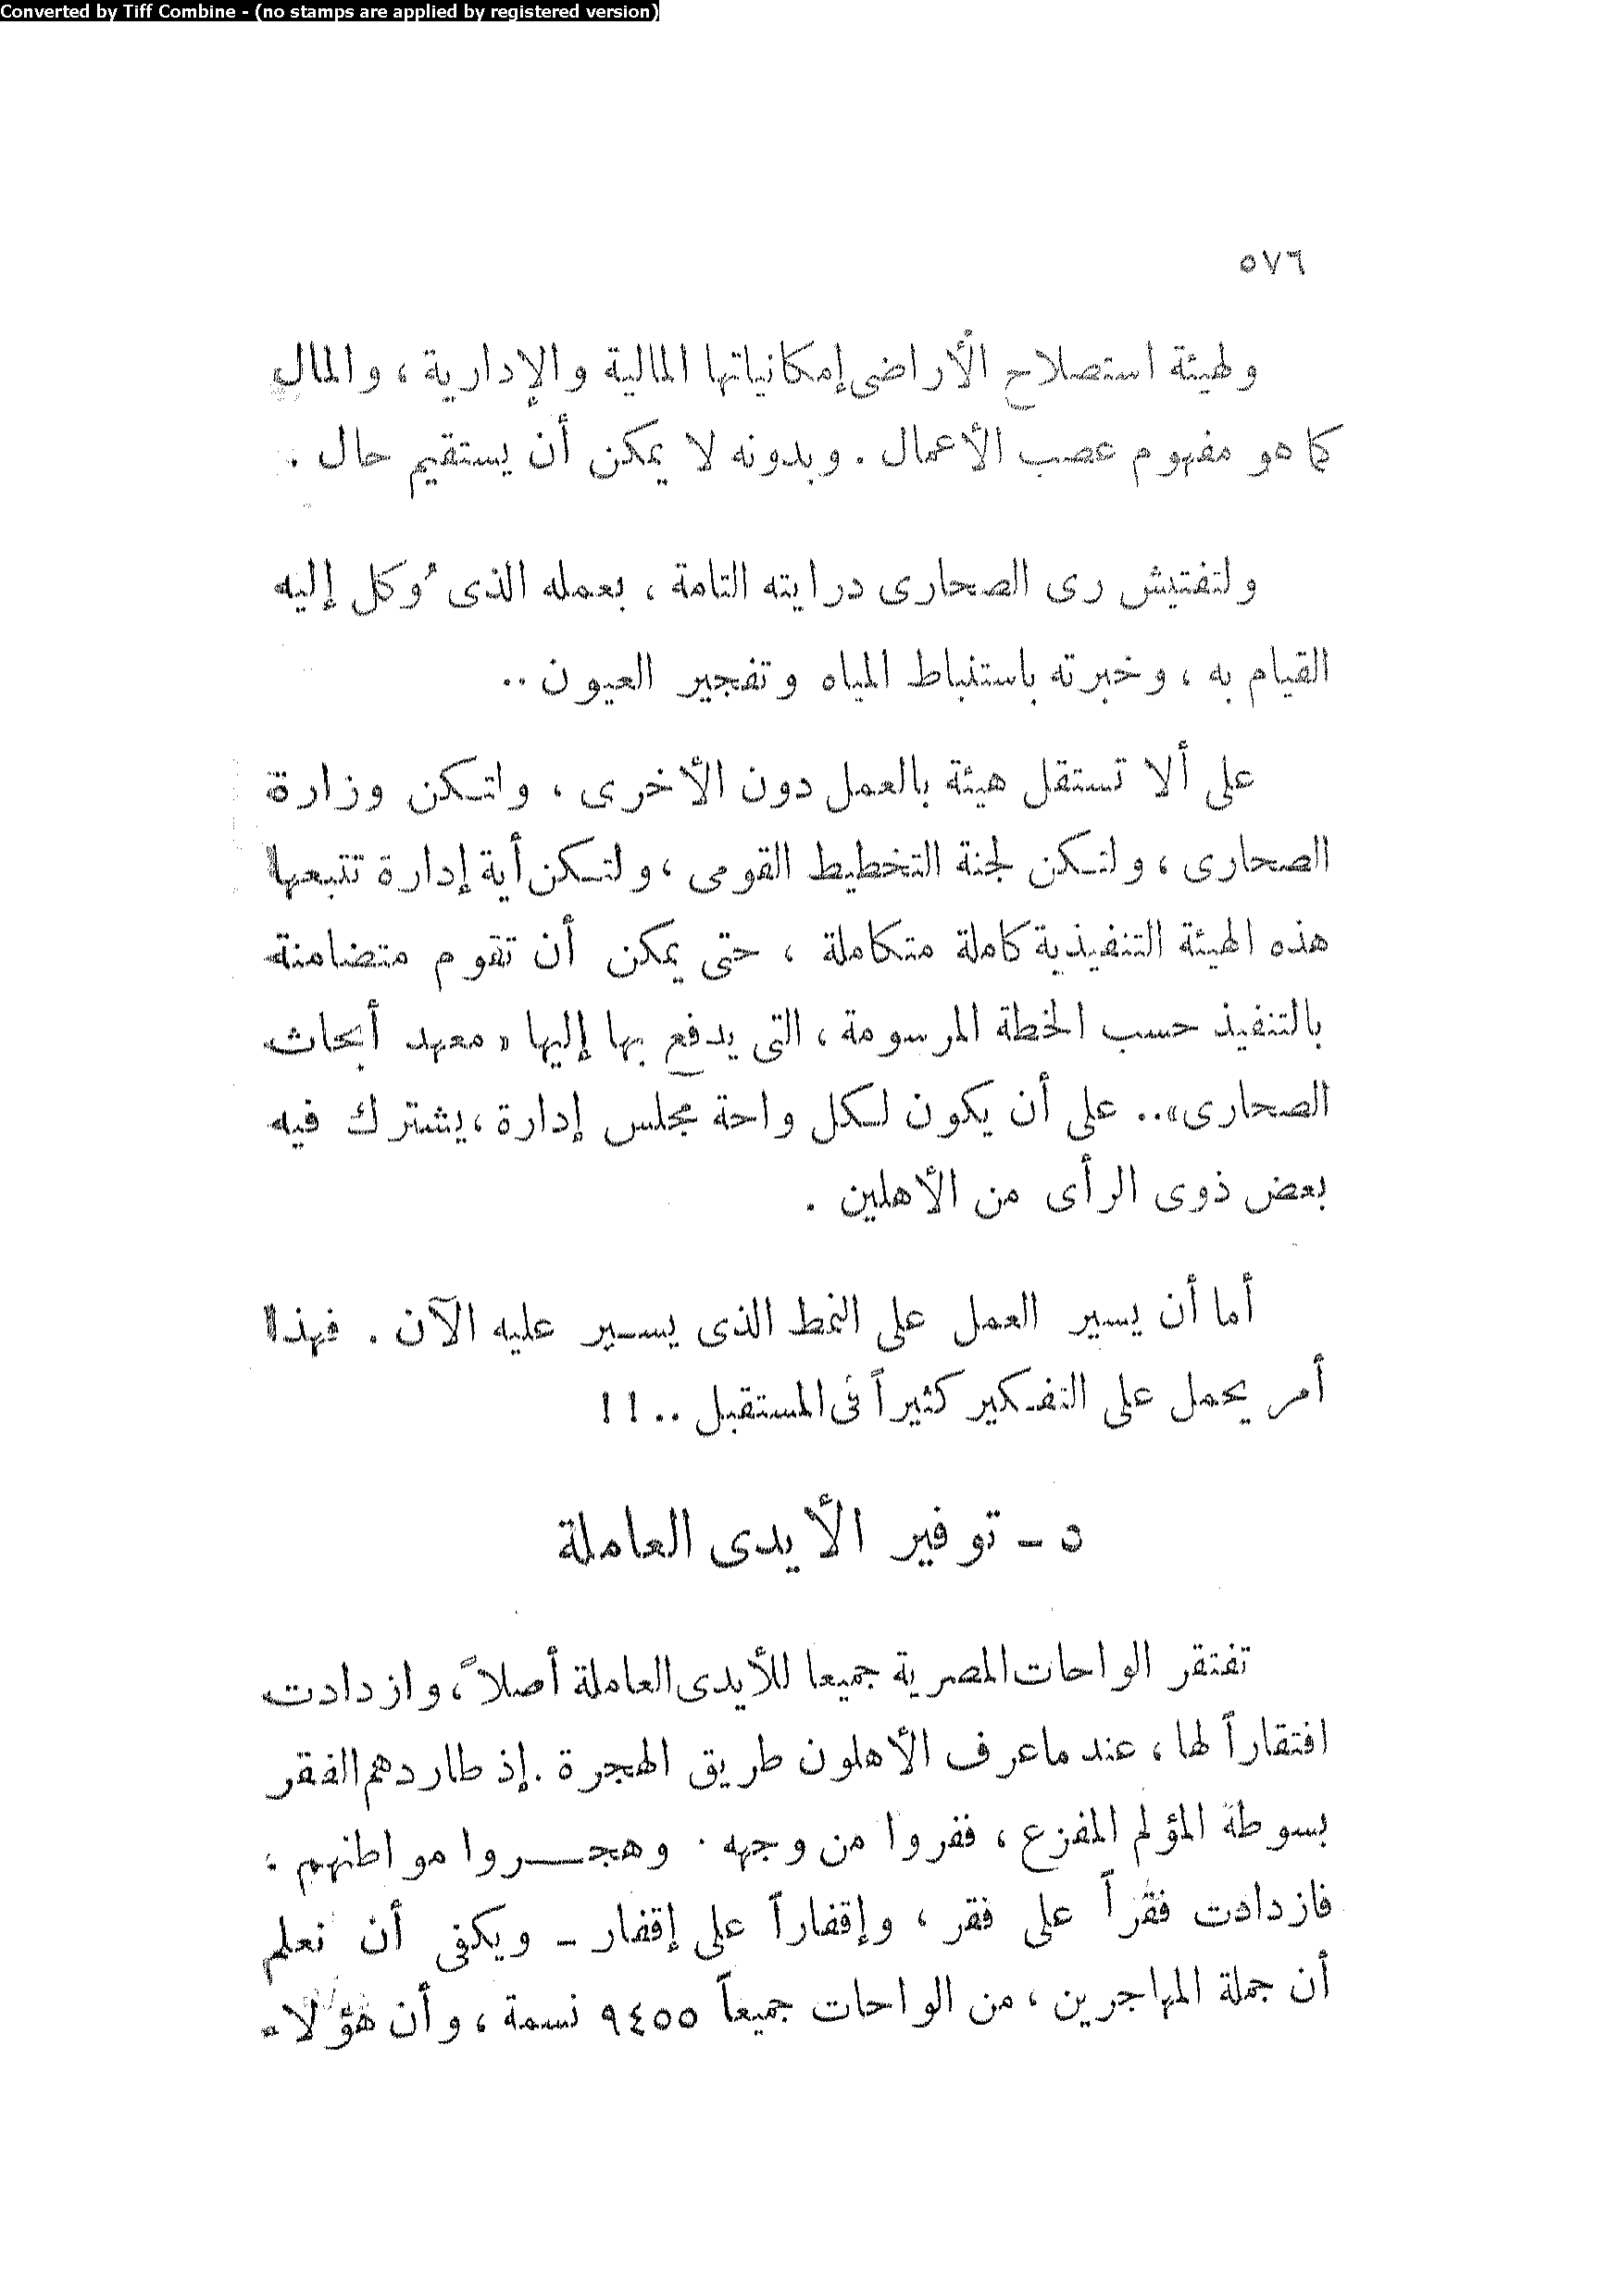 Converted by Tiff Combine - (no stamps are applied by registered version)
٥٧٦
ولهيئة استصلاح الأراضى إمكانياتها المالية والإدارية ، والمال
كما هو مفهوم عصب الأعمال . وبدونه لا يمكن أن يستقيم حال .
ولتفتيش رى الصحارى درايته التامة ، بعمله الذى وُكل إليه
القيام به ، وخبرته باستنباط المياه وتفجير العيون ..
على ألا تستقل هيئة بالعمل دون الأخرى . ولتكن وزارة
الصحارى ، ولتكن لجنة التخطيط القومى ، ولتكن أية إدارة تتبعها
هذه الهيئة التنفيذية كاملة متكاملة ، حتى يمكن أن تقوم متضامنة
بالتنفيذ حسب الخطة المرسومة ، التى يدفع بها إليها « معهد أبحاث
الصحارى » .. على أن يكون لكل واحة مجلس إدارة ، يشترك فيه
بعض ذوى الرأى من الأهلين .
أما أن يسير العمل على النمط الذى يسير عليه الآن . فهذا
أمر يحمل على التفكير كثيراً فى المستقبل .. !!
٥ - توفير الأيدى العاملة
تفتقر الواحات المصرية جميعا للأيدى العاملة أصلاً ، وازدادت
افتقاراً لها ، عندما عرف الأهلون طريق الهجرة . إذ طاردهم الفقر
بسوطة المؤلم المفزع ، ففروا من وجهه . وهجروا مواطنهم ؛
فازدادت فقراً على فقر ، وإقفاراً على إقفار - ويكفى أن نعلم
أن جملة المهاجرين ، من الواحات جميعاً ٩٤٥٥ نسمة ، وأن هؤلاء